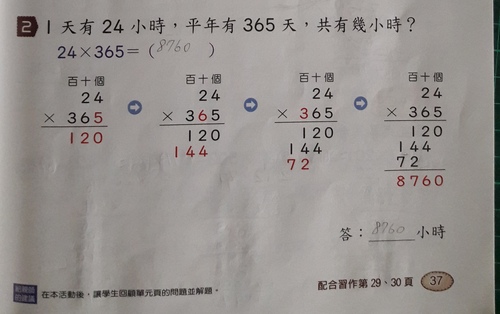 2 1天有24小時，平年有365天，共有幾小時？
24×365＝（8760）
百十個 百十個 百十個 百十個
24 24 24 24
×365 ×365 ×365 ×365
120 120 120 120
144 144 144
72 72
8760
答：8760小時
在本活動後，讓學生回顧單元頁的問題並解題。
配合習作第29、30頁 37